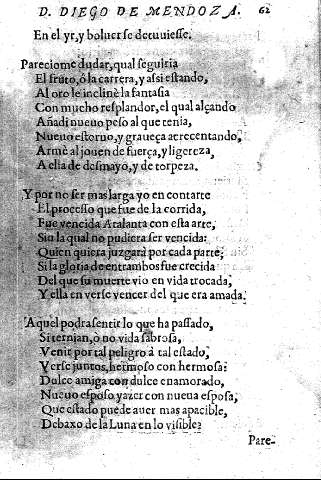 D. DIEGO DE MENDOZA. 62
En el yr, y boluer se detuuiesse.
Pareciome dudar, qual seguiria
El fruto, ò la carrera, y assi estando,
Al oro le inclinè la fantasia
Con mucho resplandor, el qual alçando
Añadi nueuo peso al que tenia,
Nueuo estoruo, y graueça acrecentando,
Armè al jouen de fuerça, y ligereza,
A ella de desmayo, y de torpeza.
Y por no ser mas larga yo en contarte
El processo que fue de la corrida,
Fue vencida Atalanta con esta arte,
Sin la qual no pudiera ser vencida:
Quien quiera juzgarà por cada parte,
Si la gloria de entrambos fue crecida
Del que su muerte vio en vida trocada,
Y ella en verse vencer del que era amada.
Aquel podra sentir lo que ha passado,
Si ternian, o no vida sabrosa,
Venir por tal peligro à tal estado,
Verse juntos, hermoso con hermosa:
Dulce amiga con dulce enamorado,
Nueuo esposo yazer con nueua esposa,
Que estado puede auer mas apacible,
Debaxo de la Luna en lo visible?
Pare-